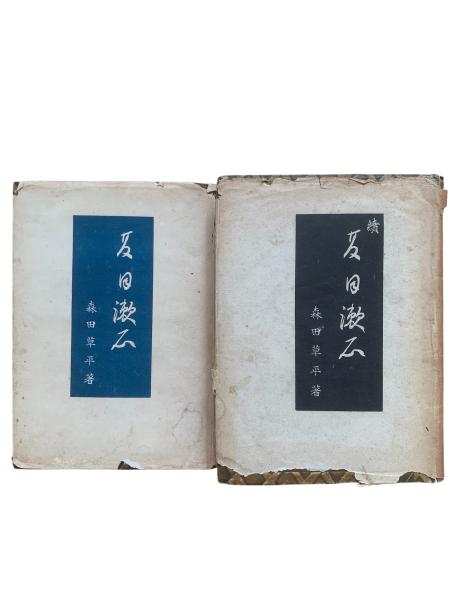 夏目漱石
森田草平著
續
夏目漱石
森田草平著